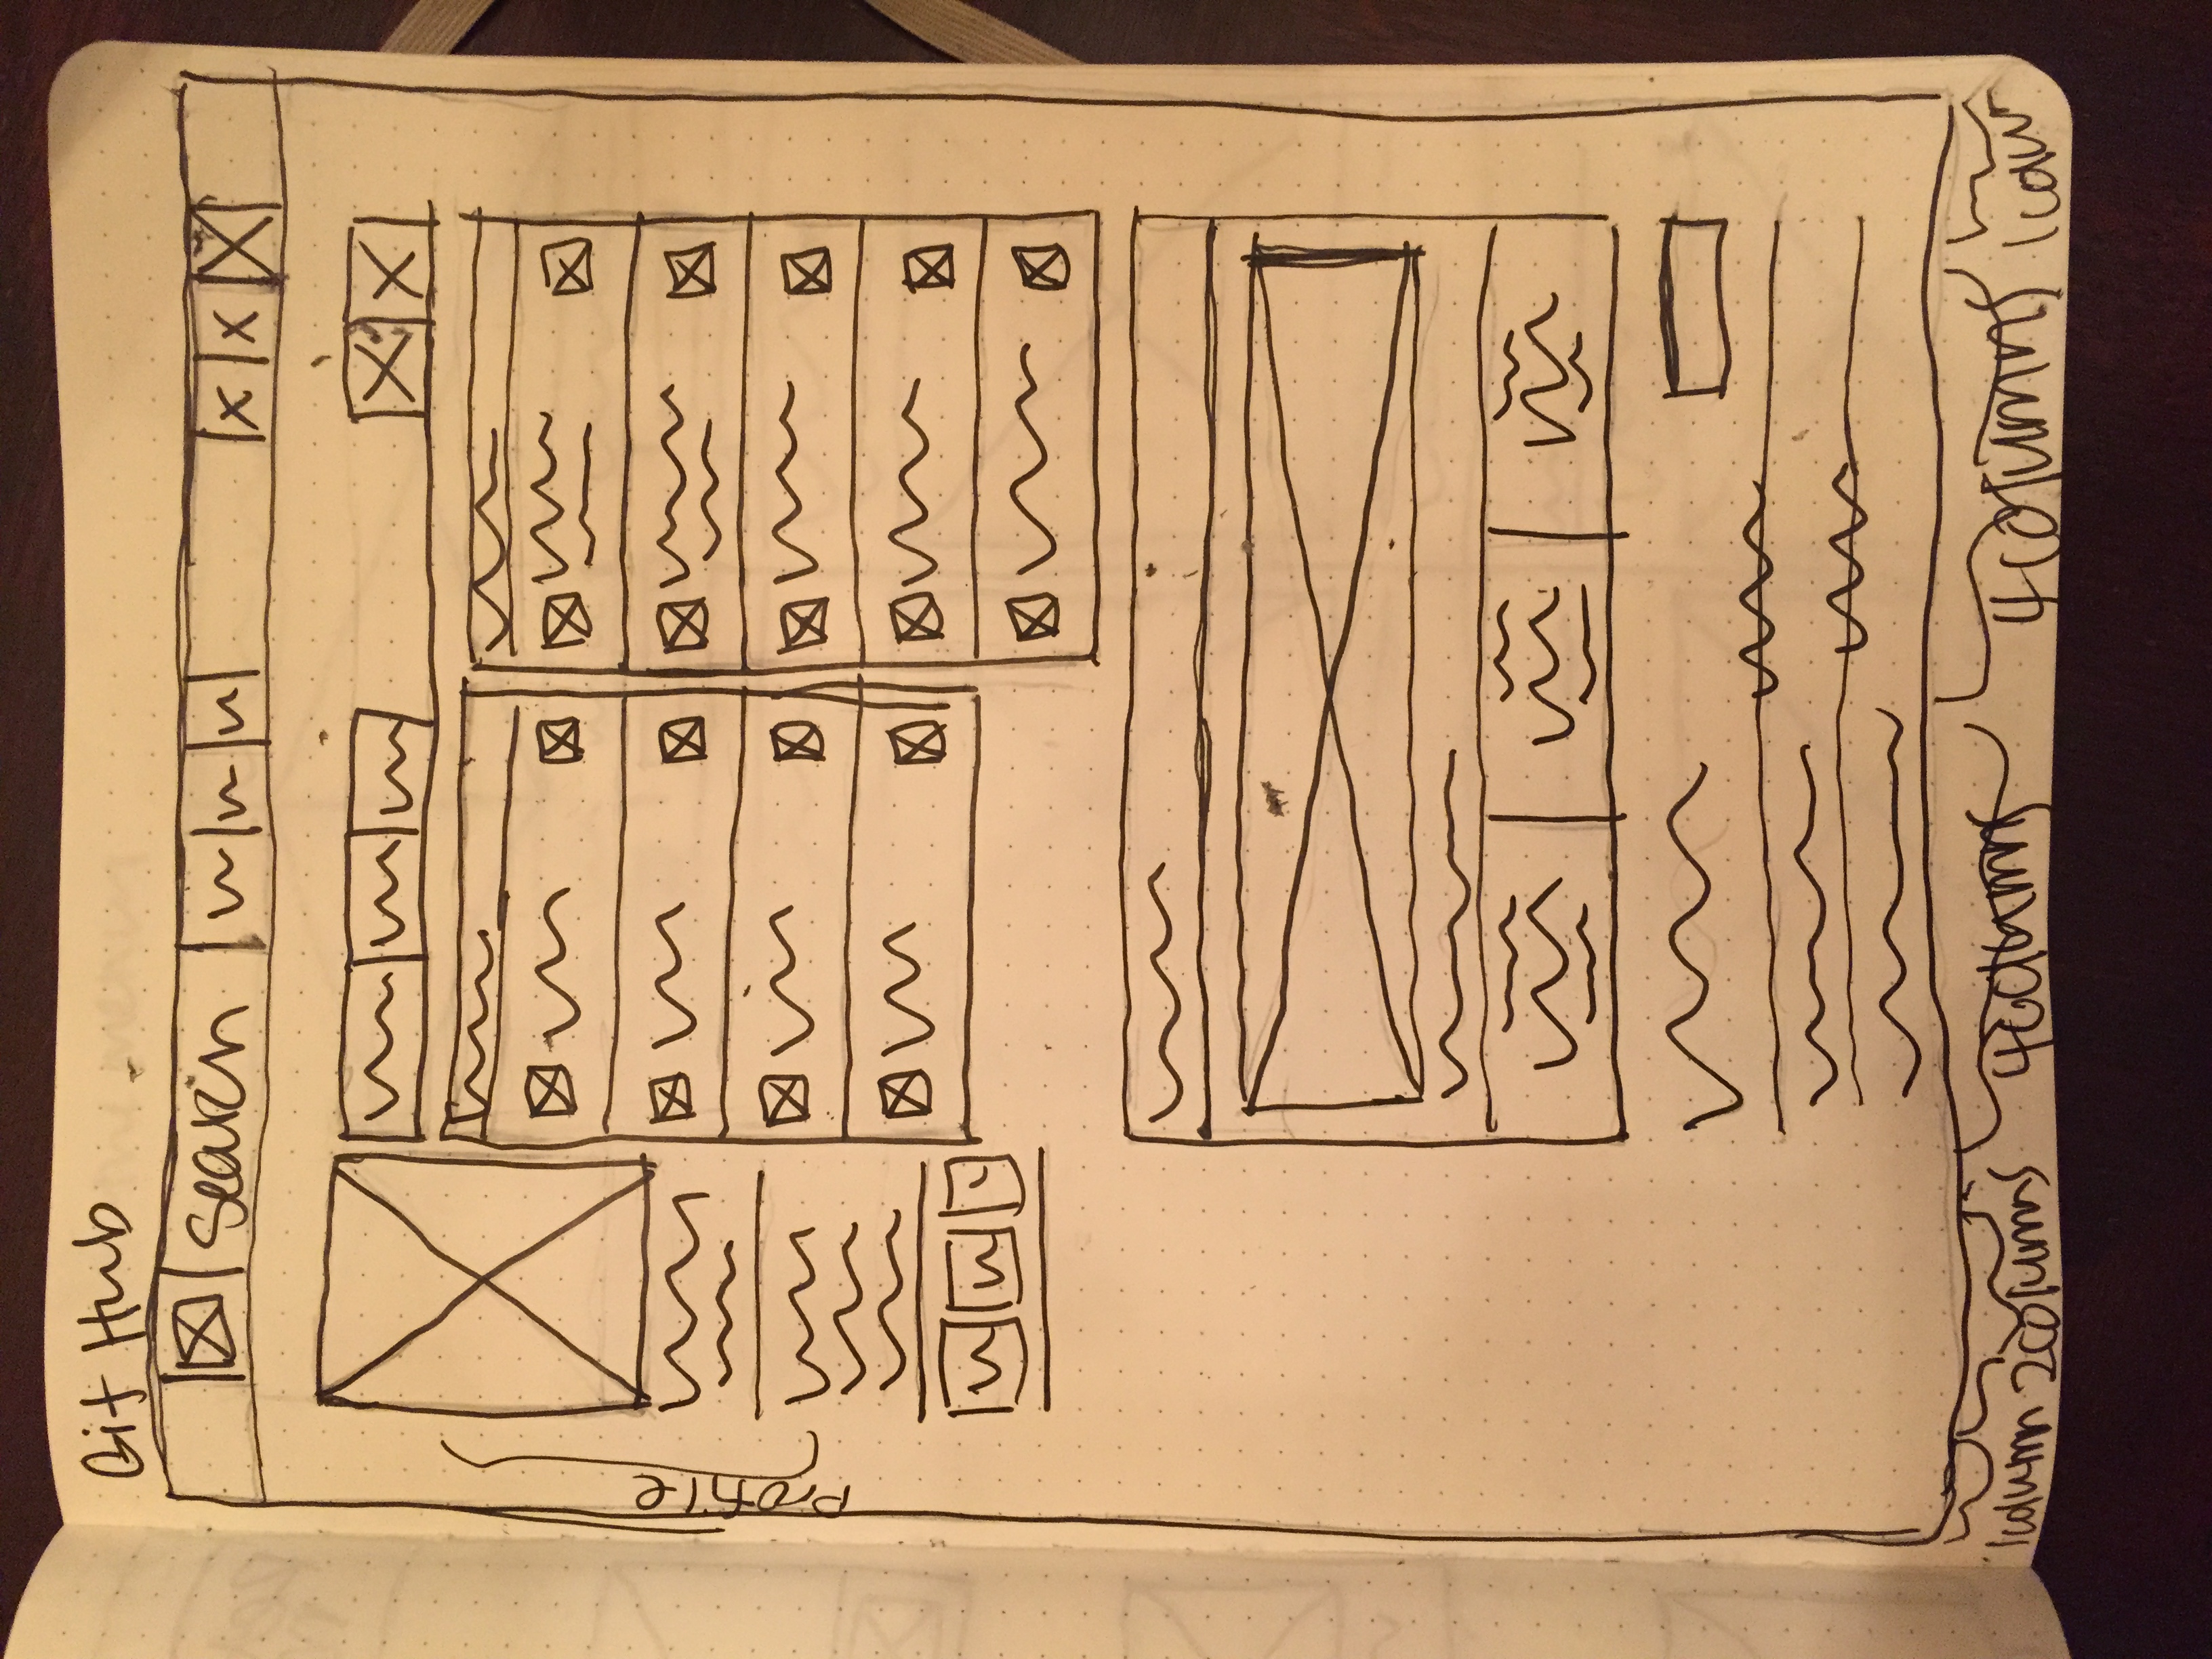 Git Hub
Search
Profile
1column 2columns 4columns 4columns 1colum